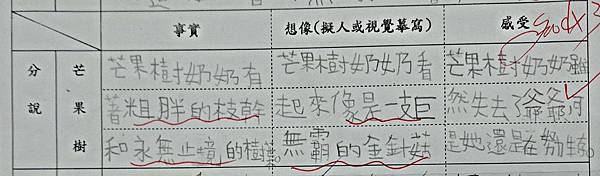 事實 想像(擬人或視覺摹寫) 感受
good
分說 芒果樹
芒果樹奶奶有
著粗胖的枝幹
和永無止境的樹葉。
芒果樹奶奶看
起來像是一支巨
無霸的金針菇
芒果樹奶奶雖
然失去了爺爺,可
是她還是在